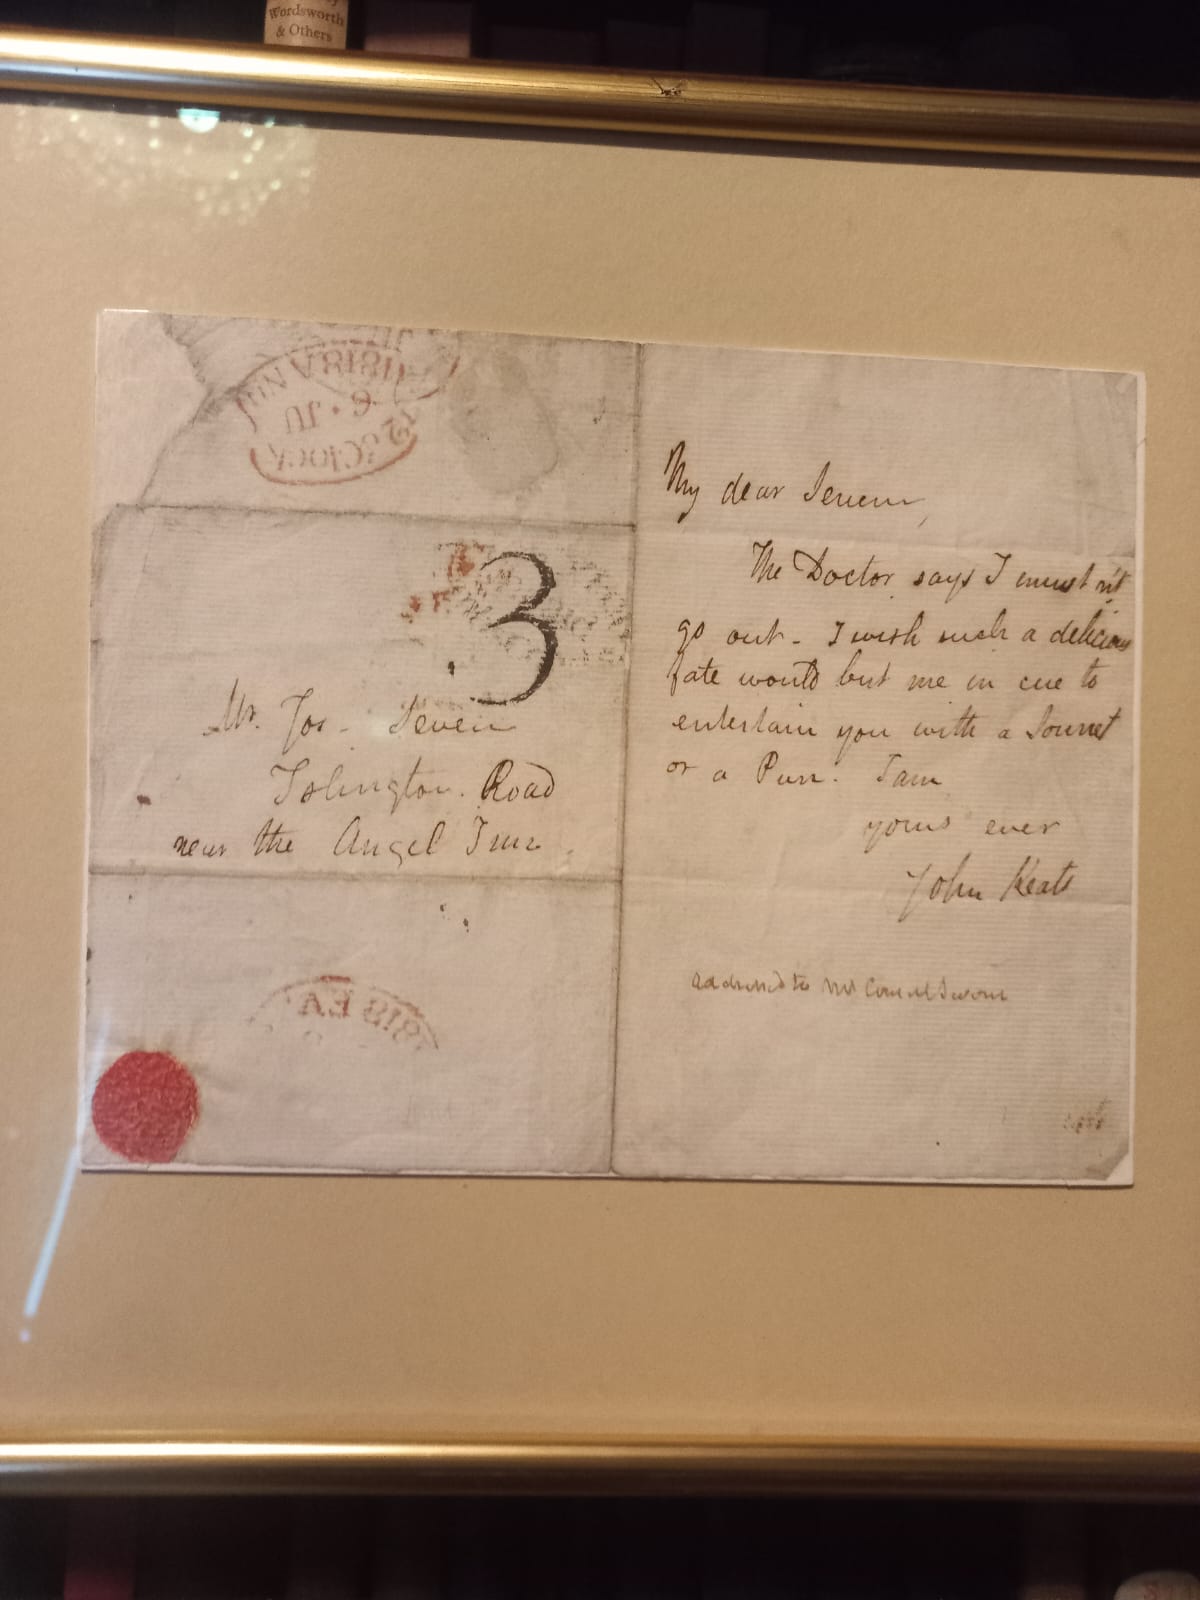 Wordsworth
& Others
1818
JU
12 o'Clock
3
Mr. Jos - Severn
Islington Road
near the Angel Inn.
1818 EA
My dear Severn,
The Doctor says I must n't
go out - I wish such a delicious
fate would but me in cue to
entertain you with a Sonnet
or a Pun. I am
yours ever
John Keats
addressed to Mr